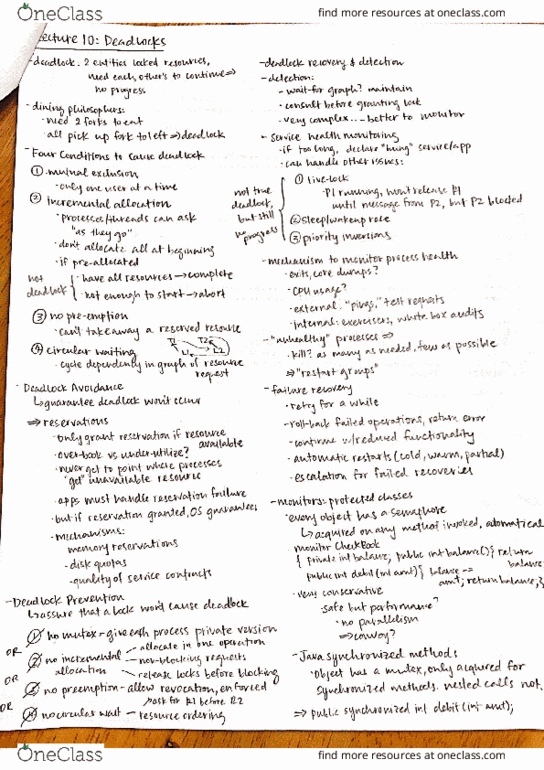 OneClass
find more resources at oneclass.com
Lecture 10: Deadlocks
-deadlock: 2 entities locked resources,
need each other's to continue ⇒
no progress
-dining philosophers:
·need 2 forks to eat
·all pick up fork to left ⇒ deadlock
-Four Conditions to cause deadlock
① mutual exclusion
·only one user at a time
② incremental allocation
·processes/threads can ask
"as they go"
·don't allocate all at beginning
·if pre-allocated
not deadlock
·have all resources → complete
·not enough to start → abort
③ no pre-emption
·can't take away a reserved resource
④ circular waiting
T1 T2
L1 L2
·cycle dependency in graph of resource
request
·Deadlock Avoidance
↳guarantee deadlock won't occur
⇒ reservations
·only grant reservation if resource
available
·over-book vs under-utilize?
·never get to point where processes
"get" unavailable resource
·apps must handle reservation failure
·but if reservation granted, OS guarantees
·mechanisms:
memory reservations
-disk quotas
-quality of service contracts
-Deadlock Prevention
↳assure that a lock won't cause deadlock
① no mutex - give each process private version
OR
② no incremental allocation
allocate in one operation
non-blocking requests
release locks before blocking
OR
③ no preemption - allow revocation, enforced
OR
④ no circular wait - resource ordering
ask for R1 before R2
-deadlock recovery & detection
-detection:
-wait-for graph? maintain
-consult before granting lock
-very complex... better to monitor
-service health monitoring
·if too long, declare "hung" service/app
·can handle other issues:
not true deadlock, but still no progress
① live-lock
·P1 running, won't release R1
until message from P2, but P2 blocked
② sleep/wakeup race
③ priority inversions
-mechanism to monitor process health
-exits, core dumps?
·CPU usage?
-external: "pings," test requests
-internal: exercisers, white box audits
-"unhealthy" processes ⇒
·kill? as many as needed, few as possible
⇒ "restart groups"
-failure recovery
-retry for a while
-roll-back failed operations, return error
-continue w/reduced functionality
-automatic restarts (cold, warm, partial)
-escalation for failed recoveries
-monitors: protected classes
·every object has a semaphore
↳ acquired on any method invoked, automatical
monitor CheckBook
{ private int balance; public int balance() { return
balance
public int debit (int amt) { balance -=
amt; return balance; }
·very conservative
·safe but performance?
·no parallelism
⇒ convoy?
-Java synchronized methods
·Object has a mutex, only acquired for
synchronized methods. nested calls not.
⇒ public synchronized int debit (int amt);
OneClass
find more resources at oneclass.com